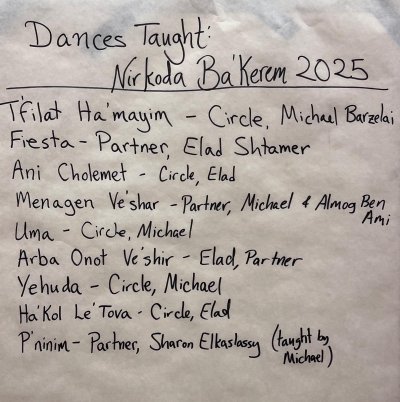 Dances Taught:
Nirkoda Ba'Kerem 2025
T'filat Ha'mayim - Circle, Michael Barzelai
Fiesta - Partner, Elad Shtamer
Ani Cholemet - Circle, Elad
Menagen Ve'shar - Partner, Michael & Almog Ben
Ami
Uma - Circle, Michael
Arba Onot Ve'shir - Elad, Partner
Yehuda - Circle, Michael
Ha'Kol Le'Tova - Circle, Elad
P'ninim - Partner, Sharon Elkaslassy (taught by
Michael)